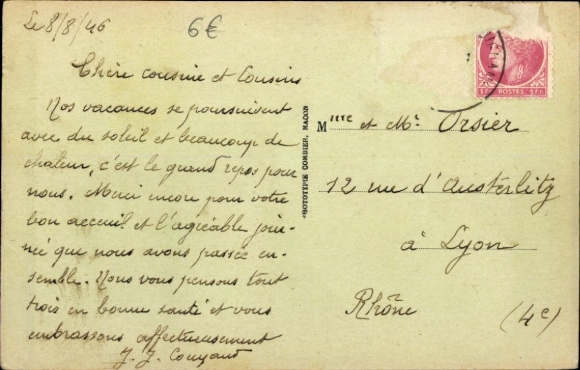 Le 8/8/46
6€
Chère cousine et Cousins
Nos vacances se poursuivent
avec du soleil et beaucoup de
chaleur, c'est le grand repos pour
nous. Merci encore pour votre
bon acceuil et l'agréable jour-
née que nous avons passée en-
semble. Nous vous pensons tout
trois en bonne santé et vous
embrassons affectueusement
J. J.
PHOTOTYPIE COMBIER, MACON
1F POSTES 1F
Mme et Mr Orsier
12 rue d'Austerlitz
à Lyon
Rhône
(4e)